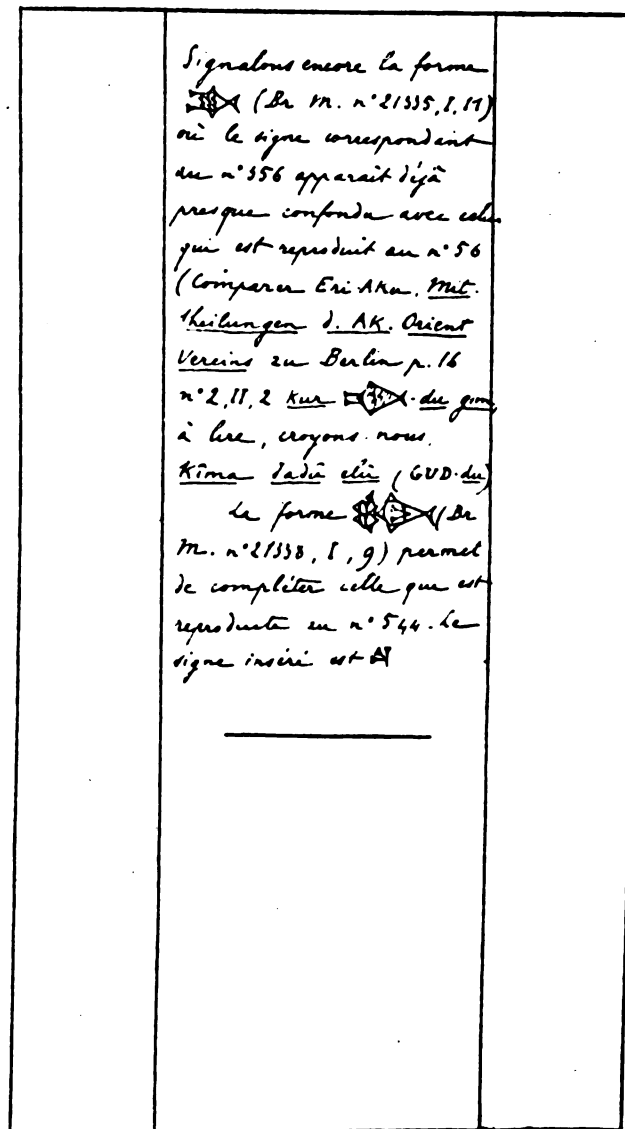 Signalons encore la forme
(Br M. n° 21335, I, 17)
où le signe correspondant
au n° 356 apparait déjà
presque confondu avec celui
qui est reproduit au n° 56
(Comparer Eri-Aku, Mit-
theilungen d. AK. Orient
Vereins zu Berlin p. 16
n° 2, II, 2 kur -du gim,
à lire, croyons-nous,
Kîma šadû elû (GUD-du)
La forme (Br
M. n° 21338, I, 9) permet
de compléter celle que est
reproduite au n° 544. Le
signe inséré est